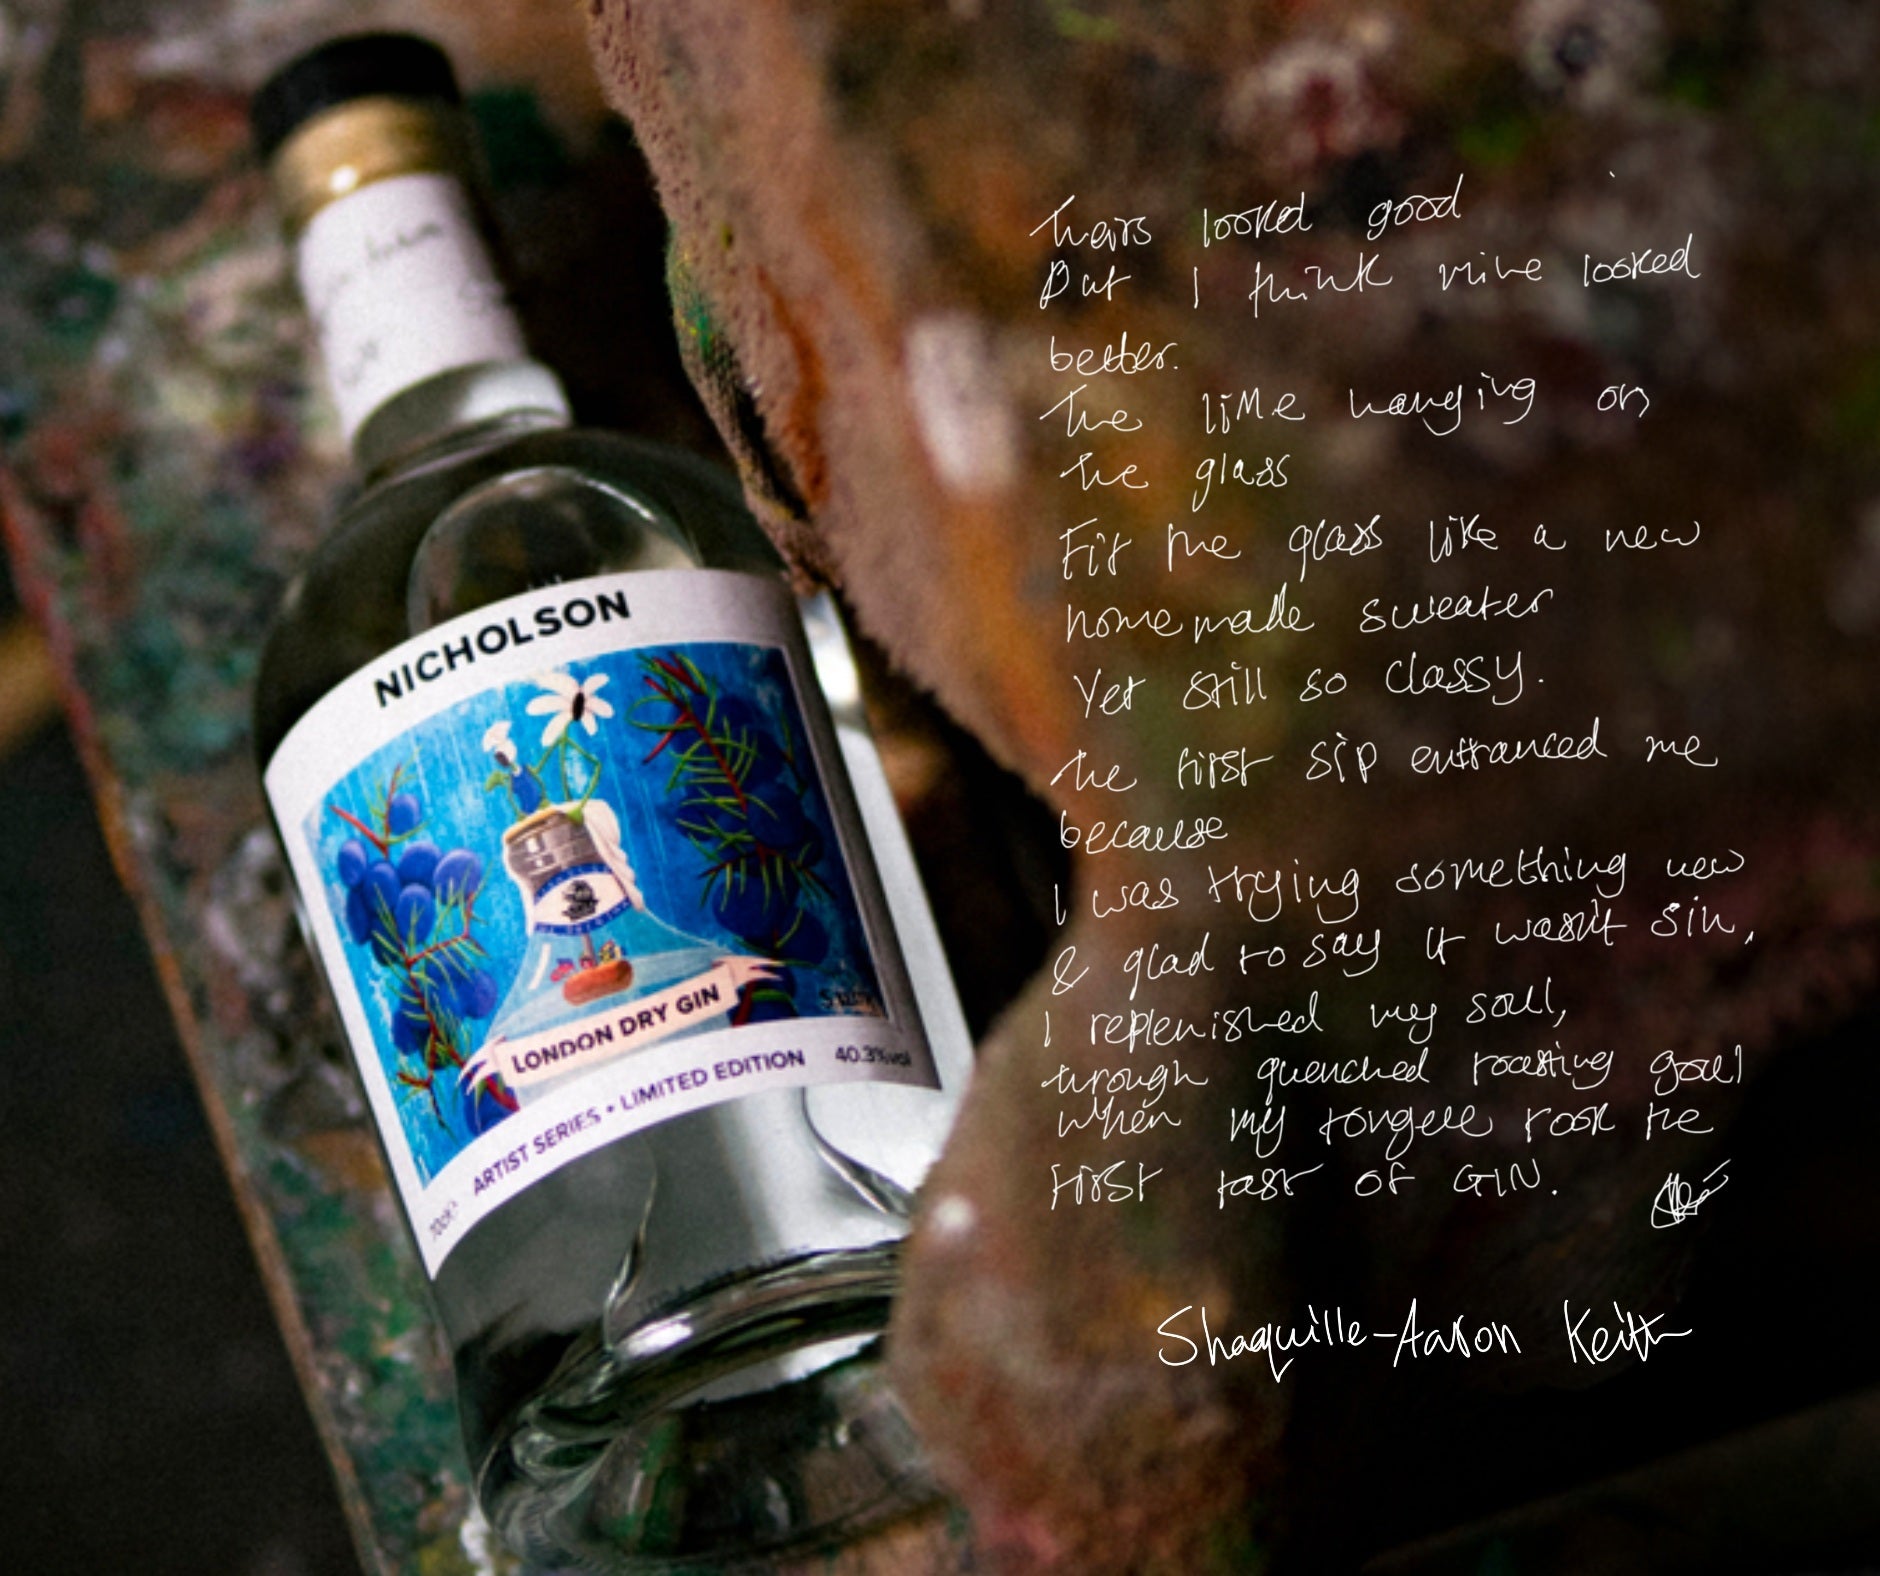 NICHOLSON
LONDON DRY GIN
ARTIST SERIES • LIMITED EDITION 40.3%vol
70cl
Theirs looked good
But I think mine looked
better.
The lime hanging on
the glass
Fit the glass like a new
homemade sweater
Yet still so classy.
The first sip entranced me
because
I was trying something new
& glad to say it wasn't sin,
I replenished my soul,
through quenched roasting goul
when my tongue took the
first tast of GIN.
Shaquille-Aaron Keith